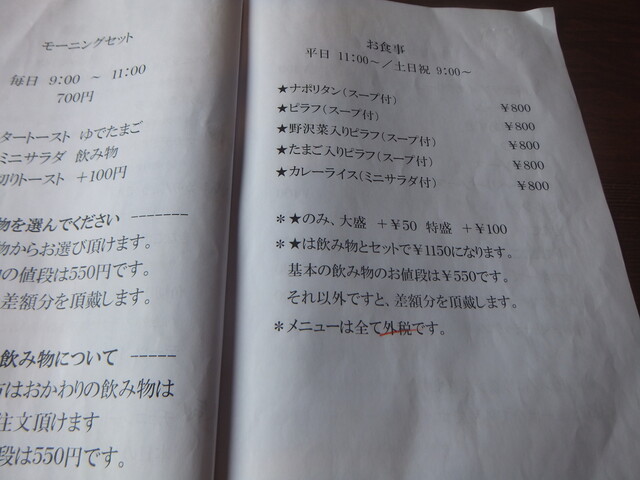 モーニングセット
毎日 9:00 ～ 11:00
700円
タートースト ゆでたまご
ミニサラダ 飲み物
切りトースト ＋100円
物を選んでください -------
物からお選び頂けます。
の値段は550円です。
差額分を頂戴します。
飲み物について -----
はおかわりの飲み物は
注文頂けます
段は550円です。
お食事
平日 11:00～／土日祝 9:00～
★ナポリタン（スープ付） ￥800
★ピラフ（スープ付） ￥800
★野沢菜入りピラフ（スープ付） ￥800
★たまご入りピラフ（スープ付） ￥800
★カレーライス（ミニサラダ付） ￥800
＊★のみ、大盛 ＋￥50 特盛 ＋￥100
＊★は飲み物とセットで￥1150になります。
基本の飲み物のお値段は￥550です。
それ以外ですと、差額分を頂戴します。
＊メニューは全て外税です。